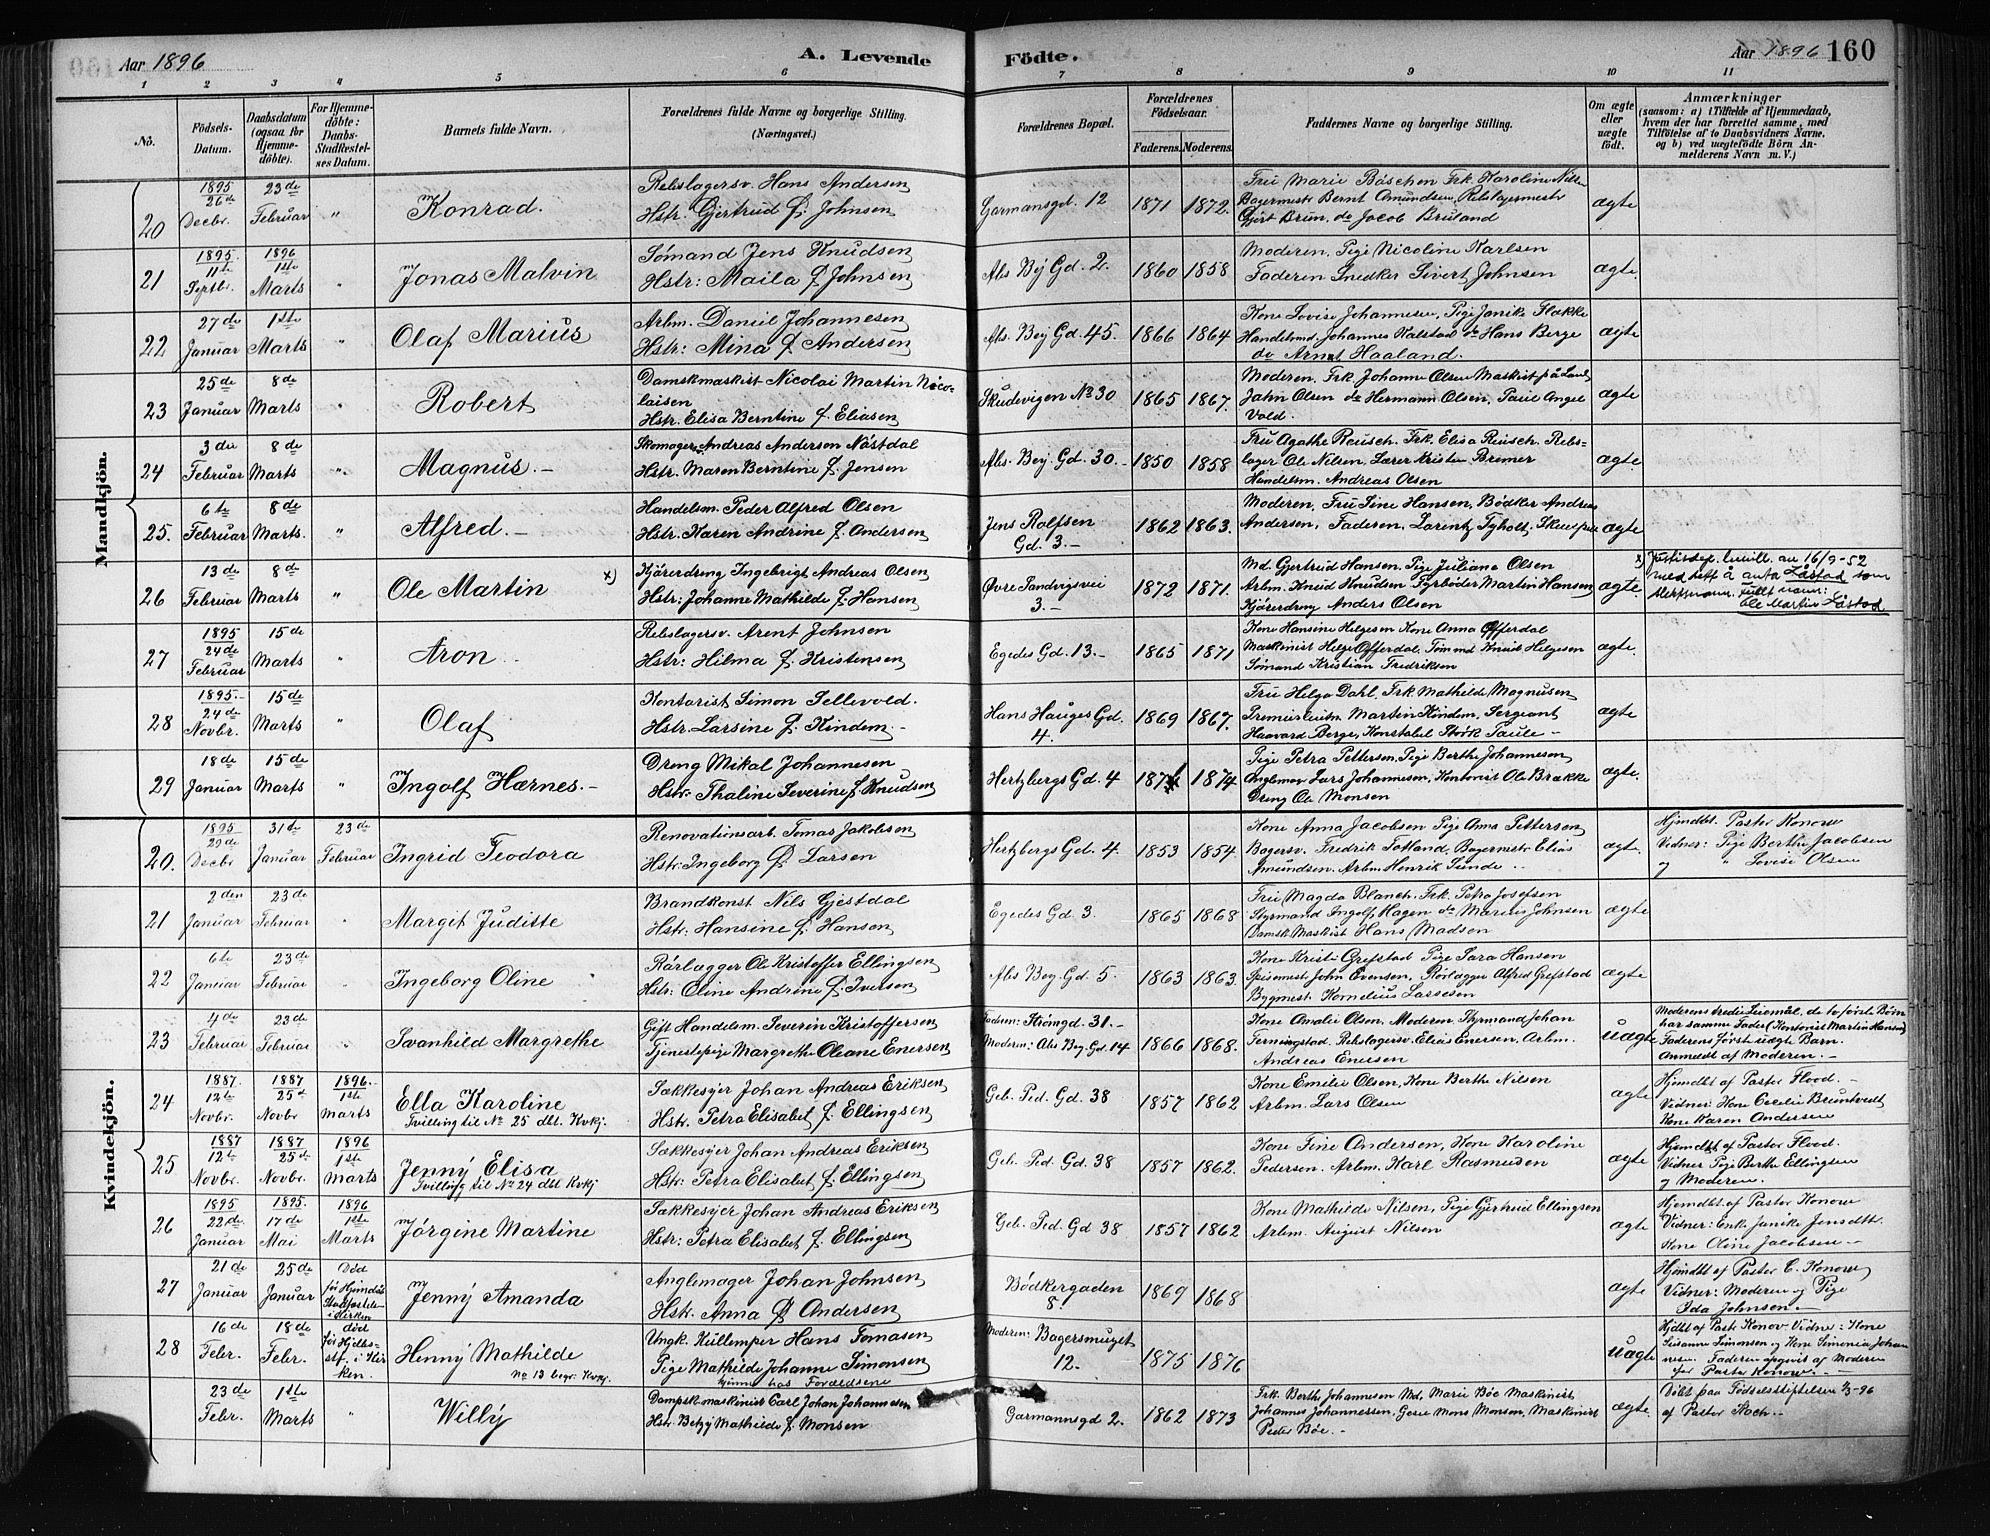 Aar 1896
A. Levende Födte.
Aar 1896 160
1 2 3 4 5 6 7 8 9 10 11
No.
Födsels-Datum.
Daabsdatum (ogsaa for Hjemmedöbte).
For Hjemmedöbte: Daabs-Stadfæstelses Datum.
Barnets fulde Navn.
Forældrenes fulde Navne og borgerlige Stilling. (Næringsvei.)
Forældrenes Bopæl.
Forældrenes Födselsaar.
Faderens. Moderens.
Faddernes Navne og borgerlige Stilling.
Om ægte eller uægte födt.
Anmærkninger
(saasom: a) i Tilfælde af Hjemmedaab, hvem der har forrettet samme, med Tilföielse af to Daabsvidners Navne. og b) ved uægtefödte Börn Anmelderens Navn m. V.)
Mandkjön.
20 1895 26de Decbr. 23de Februar " Konrad.
Rebslagersv. Hans Andersen
Hstr. Gjertrud f. Johnsen
Garmansgd. 12 1871 1872.
Fru Marie Böschen Frk. Karoline Nilsen
Bagermestr Bernt Amundsen, Rebslagermestr
Gjert Brun, do Jacob Bruland
ægte
21 1895. 11te Septbr. 1896 1ste Marts " Jonas Malvin
Sømand Jens Knudsen
Hstr: Maila f. Johnsen
Als Bej Gd. 2. 1860 1858
Moderen, Pige Nicoline Karlsen
Faderen Snedker Sivert Johnsen
ægte.
22 27de Januar 1ste Marts " Olaf Marius
Arbm. Daniel Johannesen
Hstr: Mina f. Andersen
Als. Bej Gd. 45. 1866 1864
Kone Lovise Johannesen, Pige Janike Flække
Handelsmd. Johannes Halstad do Hans Berge
do Arnt Haaland.
ægte
23 25de Januar 8de Marts " Robert
Damskmaskist Nicolai Martin Nicolaisen
Hstr. Elisa Berntine f. Eliasen
Skudevigen No 30 1865 1867.
Moderen, Frk. Johanne Olsen Maskist på Land
Jahn Olsen do Hermann Olsen, Paul Angel
Vold.
ægte
24 3die Februar 8de Marts " Magnus. -
Skomager Andreas Andersen Nästdal
Hstr. Maren Berntine f. Jensen
Als. Bej. Gd. 30. - 1850 1858
Fru Agathe Reusch. Frk. Elisa Reusch. Rebslager Ole Nilsen, Lærer Kristen Bremer
Handelsm. Andreas Olsen
ægte.
25. 6te Februar 8de Marts. " Alfred. -
Handelsm. Peder Alfred Olsen
Hstr. Karen Andrine f. Andersen
Jens Rolfsen Gd. 3. - 1862 1863.
Moderen, Fru Sine Hansen, Bødker Andreas
Andersen, Faderen, Lorentz Tyholt.
ægte
26 13de Februar 8de Marts " Ole Martin x)
Kjøredreng Ingebrigt Andreas Olsen
Hstr: Johanne Mathilde f. Hansen
Øvre Sandvigsvei 3. - 1872 1871.
Md. Gjertrud Hansen, Pige Juliane Olsen
Arbm. Knud Knudsen Fyrböder Martin Hansen
Kjøredreng Anders Olsen
ægte.
x) Justisdep. bevill. av 16/9-52
med rett å anta Låstad som
slektsnavn. Fullt navn:
Ole Martin Låstad
27 1895 24de Februar 15de Marts " Aron
Rebslagersv. Arent Johnsen
Hstr: Hilma f. Kristensen
Egedes Gd. 13. - 1865 1871
Kone Hansine Helgesen Kone Anna Offerdal
Maskinist Helge Offerdal, Tømmd Knud Helgesen
Sømand Kristian Fredriksen
ægte.
28 1895. - 24de Novbr. 15de Marts " Olaf
Kontorist Simon Sellevold.
Hstr. Larsine f. Kindem. -
Hans Hauges Gd. 4. 1869 1867.
Fru Helga Dahl, Frk Mathilde Magnusen
Premierleutn. Martin Kindem, Sergeant
Haavard Berge, Konstabel Störk Taule -
ægte
29 18de Januar 15de Marts " Ingolf Hærnes. -
Dreng Mikal Johannesen
Hstr. Thaline Severine f. Knudsen
Hertzbergs Gd. 4 1874
Pige Petra Pettersen, Pige Berthe Johannesen
Anglemag Lars Johannesen, Kontorist Ole Brække
Dreng Ole Monsen
ægte.
Kvindekjön.
20. 1895 29de Decbr 31te Januar 23de Februar Ingrid Teodora
Renovationsarb. Tomas Jakobsen
Hstr. Ingeborg f. Larsen
Hertzbergs Gd. 4. 1853 1854.
Kone Anna Jacobsen Pige Anna Pettersen
Bagersv. Fredrik Totland, Bagermestr Elias
Amundsen. Arbm. Henrik Sunde
ægte.
Hjmdbt. Pastor Konow
Vidner: Pige Berthe Jacobsen
og " Lovise Olsen
21 2den Januar 23de Februar " Margit Juditte
Brandkonst. Nils Gjestdal
Hstr: Hansine f. Hansen
Egedes Gd. 3. 1865 1868
Fru Magda Blanch. Frk. Petra Josefsen
Styrmand Ingolf Hagen do Marius Johnsen
Damsk. Maskist Hans Madsen
ægte
22 6te Januar 23de Februar " Ingeborg Oline
Rörlægger Ole Kristoffer Ellingsen
Hstr: Oline Andrine f. Iversen
Als Bej. Gd. 5 1863 1863.
Kone Kristi Grefstad Pige Sara Hansen
Spisemest. John Evensen, Rörlægger Alfred Grefstad
Bygmest. Kornelius Lassesen
ægte
23 4de Februar 23de Februar " Svanhild Margrethe
Gift Handelsm. Severin Kristoffersen
Tjenestepige Margrethe Oleane Enersen
Faderen: Strømgd. 31. -
Moderen: Als Bej. Gd. 14 1866 1868.
Kone Amalie Olsen, Moderen, Styrmand Johan
Ferningstad. Rebslagersv. Elias Enersen, Arbm.
Andreas Enersen
uægte
Moderens tredie Leiermål, de to første Børn
har samme Fader (Kontorist Martin Hansen)
Faderens først uægte Barn.
Anmeldt af Moderen. -
24 1887. 12te Novbr. 1887 25de Novbr 1896. 1ste Marts Ella Karoline
Tvilling til No 25 dbt. Kvkj.
Sækkesyer Johan Andreas Eriksen
Hstr. Petra Elisabet f. Ellingsen
Geb. Ped. Gd. 38 1857 1862
Kone Emilie Olsen, Kone Berthe Nilsen
Arbm. Lars Olsen
ægte
Hjmdbt af Pastor Flood. -
Vidner: Kone Cecilie Bruntvedt
Kone Karen Andersen
25 1887 12te Novbr. 1887 25de Novbr. 1896 1ste Marts Jenny Elisa
Tvilling til No 24 dbt Kvkj
Sækkesyer Johan Andreas Eriksen
Hstr: Petra Elisabet f. Ellingsen
Geb. Ped. Gd. 38 1857 1862.
Kone Tine Andersen, Kone Karoline
Pedersen. Arbm. Karl Rasmusen
ægte
Hjmdbt af Pastor Flood.
Vidner Pige Berthe Ellingsen
og Moderen.
26 1895 22de Januar 1895. 17de Mai 1896 1ste Marts Jörgine Martine
Sækkesyer Johan Andreas Eriksen
Hstr: Petra Elisabet f. Ellingsen
Geb. Ped. Gd 38 1857 1862
Kone Mathilde Nilsen, Pige Gjertrud Ellingsen
Arbm. August Nilsen
ægte
Hjemdbt af Pastor Konow
Vidner: Enke Janike Jensdtt.
Kone Oline Jacobsen -
27 21de Januar 25de Januar Död för Hjmdåb Stadfæstelse i Kirken Jenny Amanda
Anglemager Johan Johnsen
Hstr. Anna f. Andersen
Bödkergaden 8. 1869 1868
ægte
Hjmdbt af Pastor C. Konow
Vidner: Moderen og Pige
Ida Johnsen. -
28 16de Febr. 18de Febr. död för Hjdbs. stf. i Kirken. Henny Mathilde
No 13 begr. Kvkj.
Ungk. Kullemper Hans Tomasen
Pige Mathilde Johanne Simonsen
hjemme hos Forældrene
Moderen: Bagersmuget 12. 1875 1876
uægte
Hjdbt af Past Konow. Vidner: Kone
Susanne Simonsen og Kone Simonia Johannesen. Faderen opgivet af Moderen
for Pastor Konow. -
23de Febr. 1ste Marts " Willy
Dampskmaskinist Carl Johan Johannesen
Hstr. Betzy Mathilde f. Monsen
Garmannsgd 2. 1862 1873
Frk. Berthe Johannesen Md. Marie Böe Maskinist
Johannes Johannessen, Gesie Mons Monsen, Maskinist
Peder Böe. -
ægte.
Döbt paa Födselsstiftelsen 1/3-96
af Pastor Koch. -